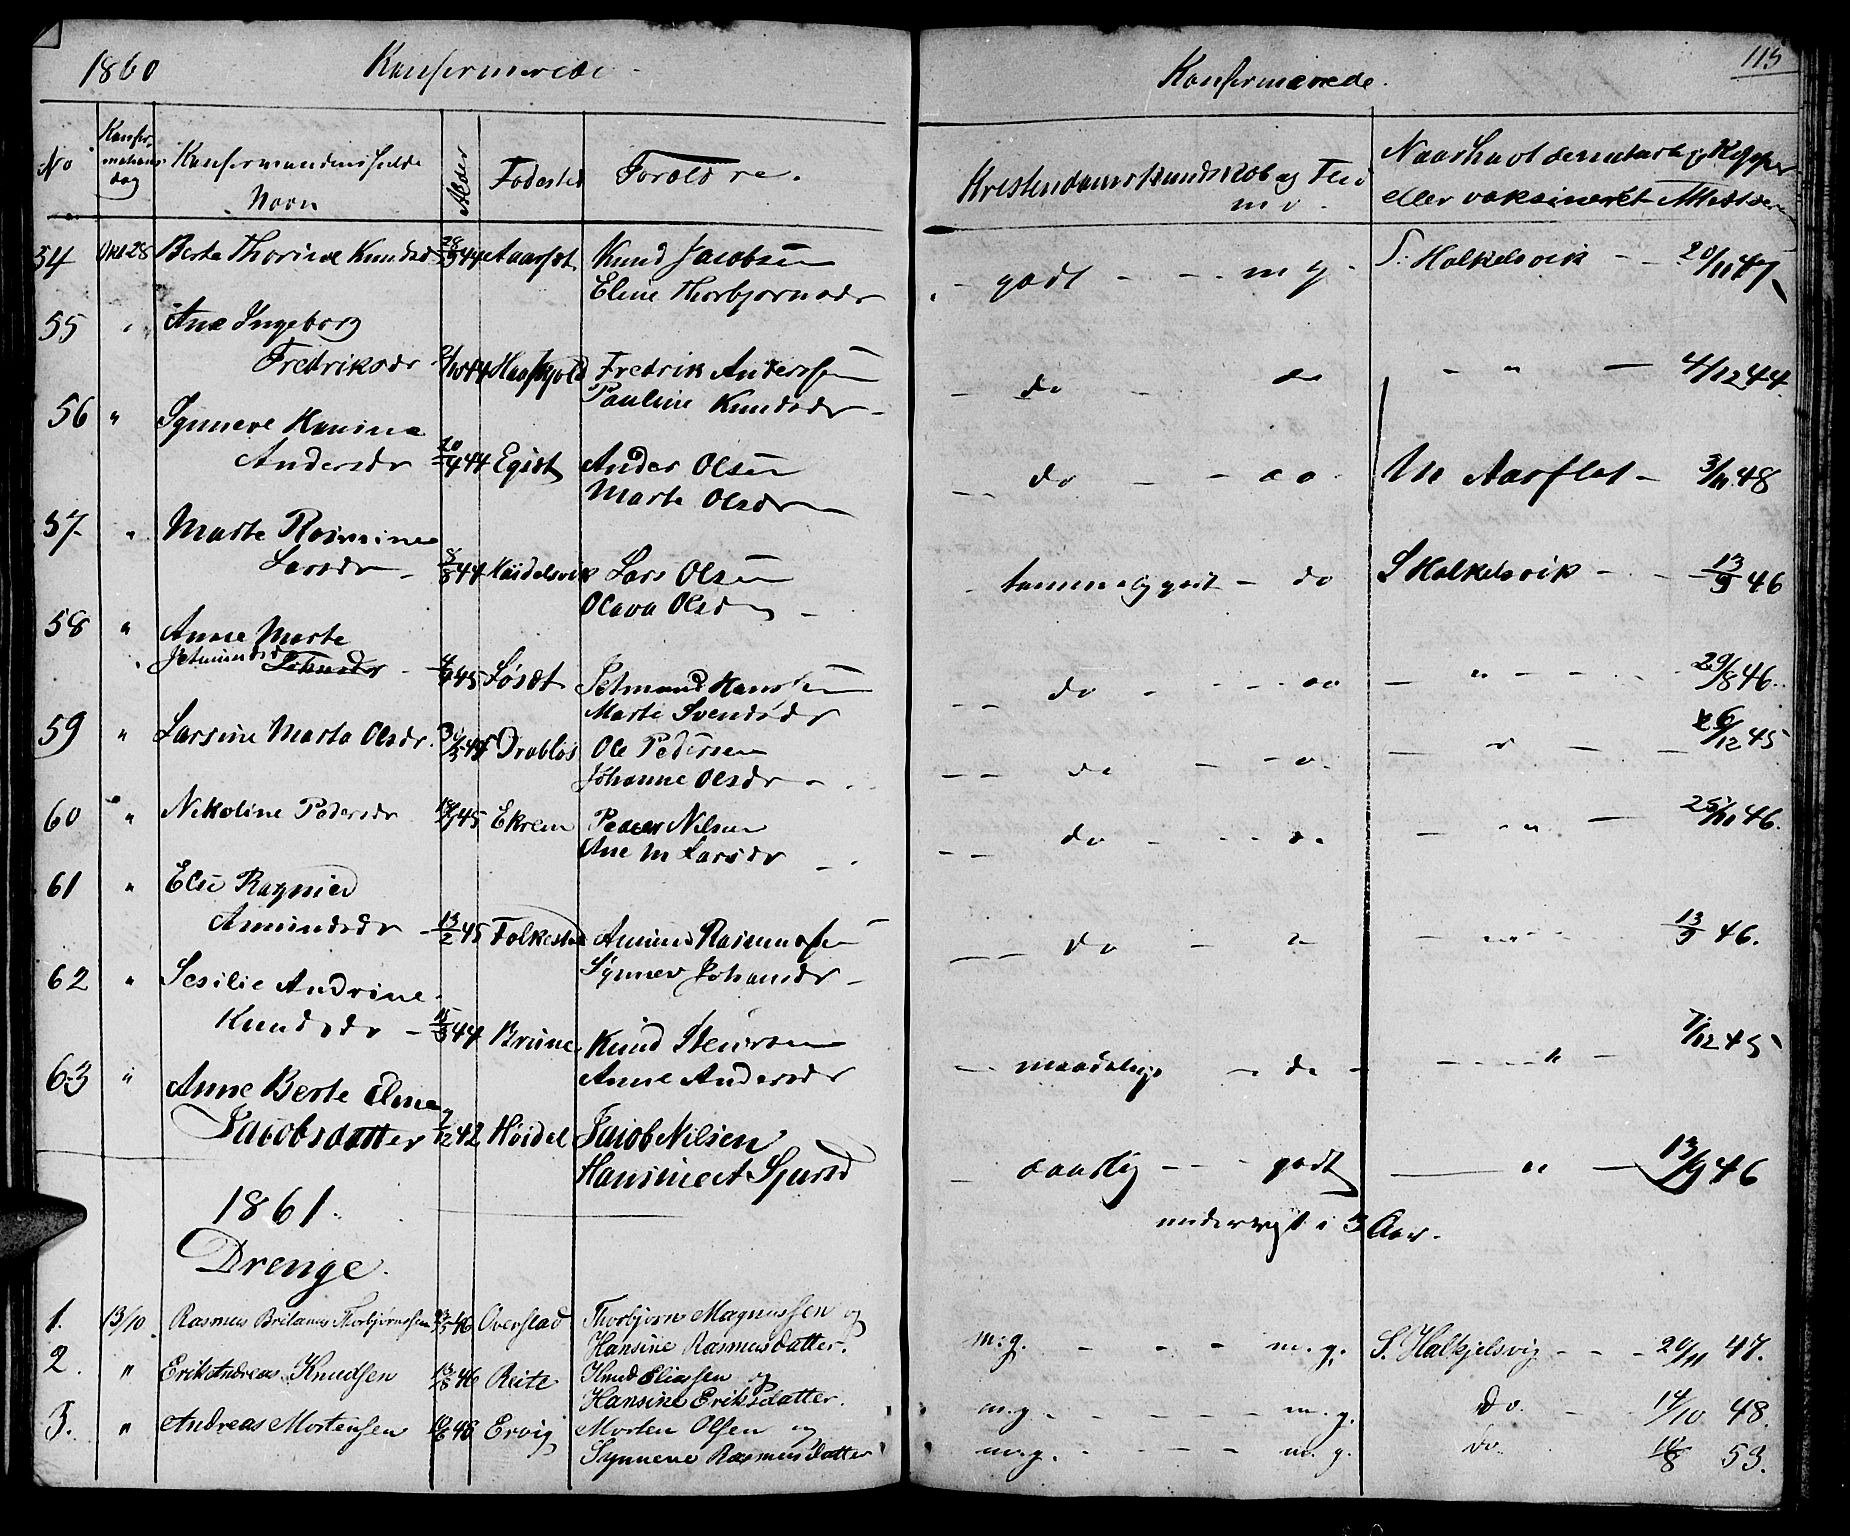 1860 Konfermerede.
Konfermerede. 115
No Konfirmations dag Konfermandens fulde Navn Alder Fødested Forældre.
Kristendomskundskab og Flid
Naar havt de naturlige Kopper eller vaksineret
54 Okt 28 Berte Thorine Knudsdr 44 Aarsæt Knud Jacobsen
Eline Thorbjørnsdr
godt - - - m g - S. Halkelsvik - - 20/11 47
55 " Ane Ingeborg
Fredriksdr 44 Fredrik Anderssen
Pauline Knudsdr -
do - do - " - 4/12 44.
56 " Synneve Hanine
Andersdr 44 Egset Anders Olsen
Marte Olsdr
do - - do M Aarflot - 3/11 48
57. " Marte Rasmine
Larsdr - 8/8 44 Lars Olsen
Olava Olsdr -
temmelig godt - do S Halkelsvik - - 13/9 46
58 " Anne Marte
Setmundsdr - 45 Løset Setmund Hanssen
Marte Svendsdr
do - - - do - " - - 29/8 46.
59 " Larsine Marta Olsdr. 45 Drabløs Ole Pedersen
Johanne Olsdr -
do - - " - 6/12 45
60 " Nikoline Pedersdr 45 Ekrem Peder Nilsen
Ane M Larsdr -
do - do - " - 25/11 46.
61 " Else Ragnie
Amundsdr - 13/2 45 Folkestad Amund Rasmussen
Synnev Johansdr -
do - " - " - 13/9 46.
62 " Sesilie Andrine
Knudsdr - 44 Brune Knud Steinsen
Anne Andersdr
maadelig - do - - " - 7/12 45
63 " Anne Berte Eline
Jacobsdatter 7/12 42 Høidal Jacob Nilsen
Hansine et Sjursd
daarlig - - - godt - " - 13/9 46
undervist i 3 Aar.
1861.
Drenge.
1. 13/10. Rasmus Thorbjørnssen 46 Overstad Thorbjørn Magnussen og
Hansine Rasmusdatter.
m:g. - - - - m.g. S. Halkjelsvig - - - 20/11 47.
2. " Erik Andreas Knudsen 13/8 46 Reite Knud Eliassen og
Hansine Eriksdatter.
m.g. - - - - m.g. Do. - - 14/10 48.
3. " Andreas Mortensen 46 Ervig Morten Olsen og
Synneve Rasmusdatter
m.g. - - - - m.g. Do. 53.